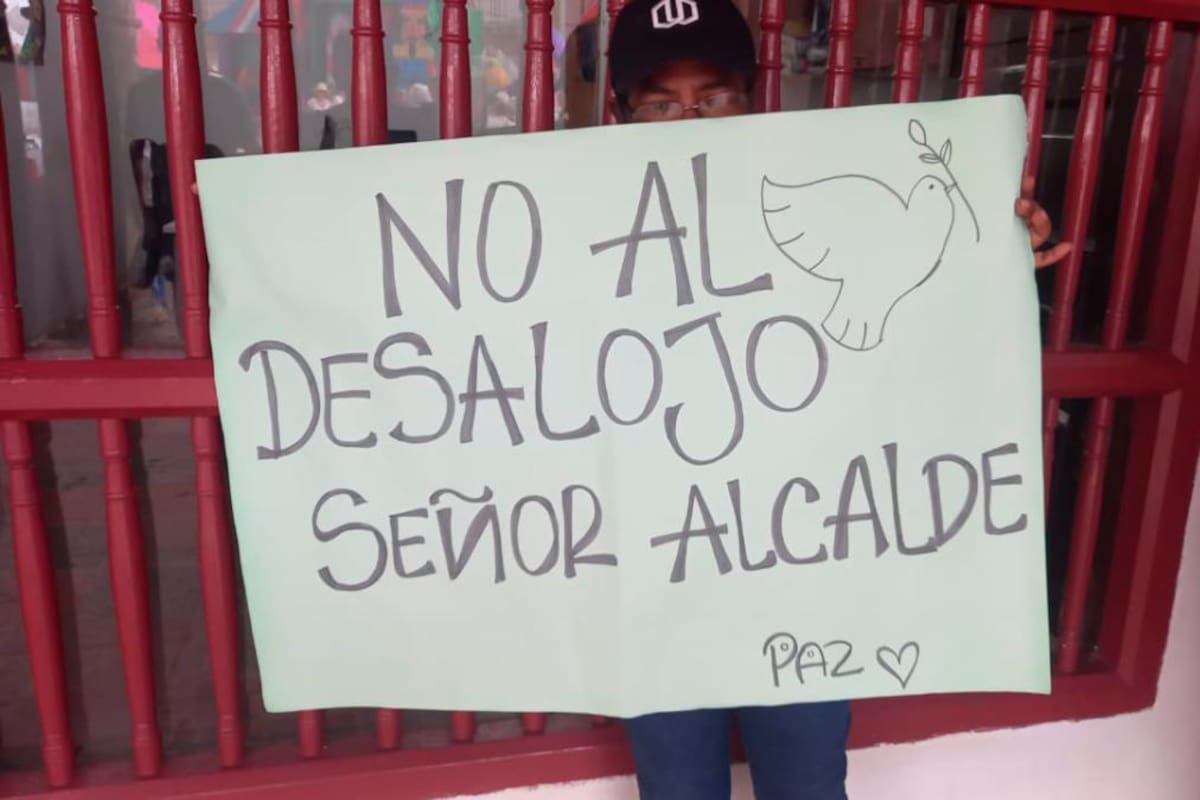 NO AL
DESALOJO
SEÑOR ALCALDE
PAZ